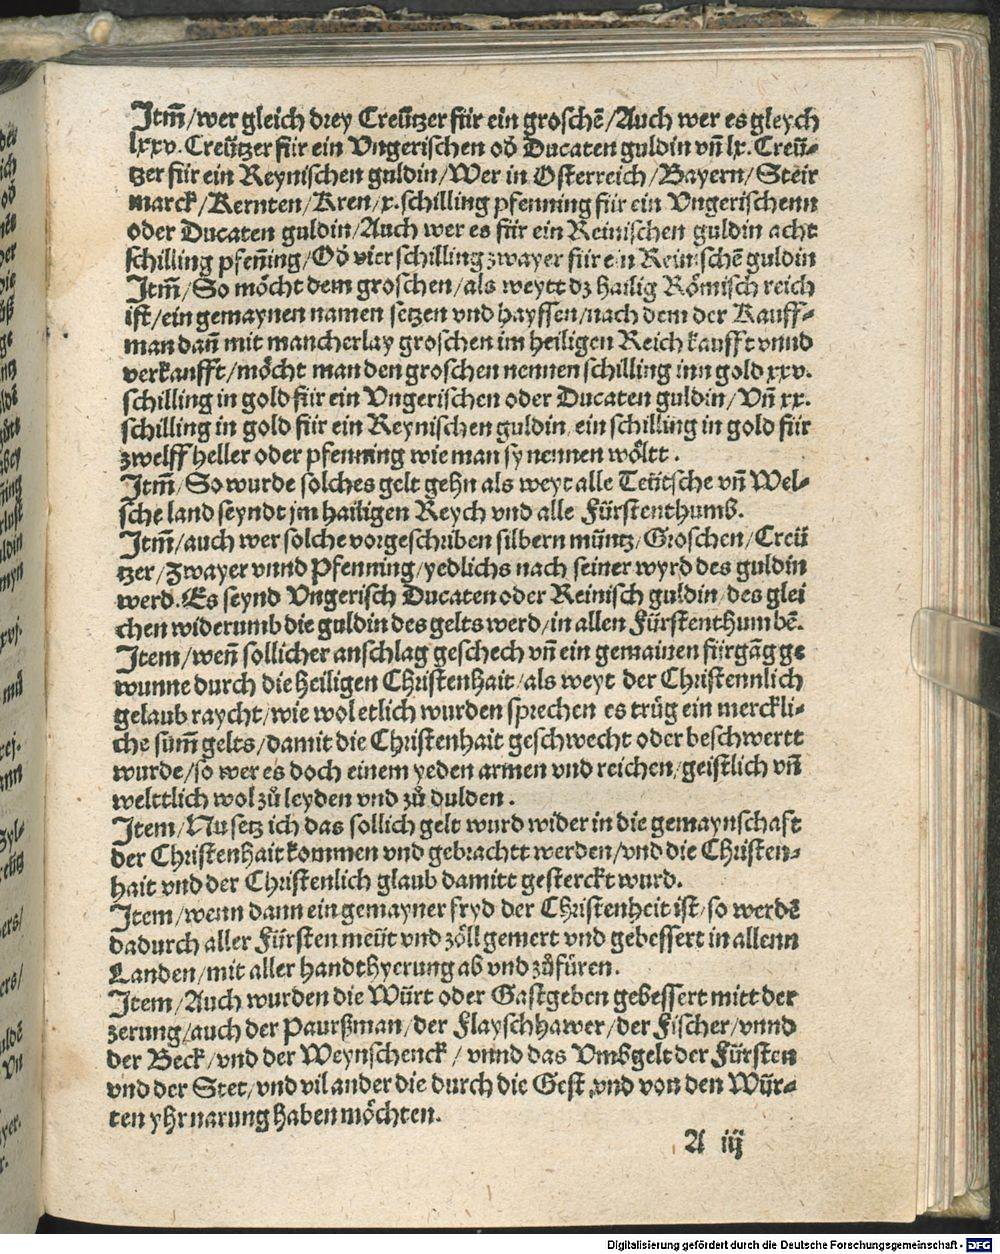 Jtm̄/wer gleich drey Creützer für ein groschē/Auch wer es gleych
lxxv. Creützer für ein Vngerischen od̄ Ducaten guldin vn̄ lx. Creü-
tzer für ein Reynischen guldin/Wer in Osterreich/Bayern/Steir
marck/Kernten/Kren/x. schilling pfenning für ein Vngerischenn
oder Ducaten guldin/Auch wer es für ein Reinischen guldin acht
schilling pfen̄ing/Od̄ vier schilling zwayer für ein Reinischē guldin
Jtm̄/So möcht dem groschen/als weytt dz hailig Römisch reich
ist/ein gemaynen namen setzen vnd hayssen/nach dem der Kauff-
man dan̄ mit mancherlay groschen im heiligen Reich kaufft vnnd
verkaufft/möcht man den groschen nennen schilling inn gold xxv.
schilling in gold für ein Vngerischen oder Ducaten guldin/Vn̄ xx.
schilling in gold für ein Reynischen guldin/ein schilling in gold für
zwelff heller oder pfenning wie man sy nennen wöltt.
Jtm̄/So wurde solches gelt gehn als weyt alle Teütsche vn̄ Wel-
sche land seyndt jm hailigen Reych vnd alle Fürstenthumb.
Jtm̄/auch wer solche vorgeschriben silbern müntz/Groschen/Creü
tzer/Zwayer vnnd Pfenning/yedlichs nach seiner wyrd des guldin
werd. Es seynd Vngerisch Ducaten oder Reinisch guldin/des glei
chen widerumb die guldin des gelts werd/in allen Fürstenthumbē.
Jtem/wen̄ sollicher anschlag geschech vn̄ ein gemainen fürgāg ge
wunne durch die heiligen Christenhait/als weyt der Christennlich
gelaub raycht/wie wol etlich wurden sprechen es trüg ein merckli-
che sum̄ gelts/damit die Christenhait geschwecht oder beschwertt
wurde/so wer es doch einem yeden armen vnd reichen/geistlich vn̄
welttlich wol zů leyden vnd zů dulden.
Jtem/Nu setz ich das sollich gelt wurd wider in die gemaynschaft
der Christenhait kommen vnd gebrachtt werden/vnd die Christen-
hait vnd der Christenlich glaub damitt gesterckt wurd.
Jtem/wenn dann ein gemayner fryd der Christenheit ist/so werdē
dadurch aller Fürsten meüt vnd zöll gemert vnd gebessert in allenn
Landen/mit aller handthyerung ab vnd zůfüren.
Jtem/Auch wurden die Würt oder Gastgeben gebessert mitt der
zerung/auch der Paurßman/der Flayschhawer/der Fischer/vnnd
der Beck/vnd der Weynschenck/vnnd das Vmbgelt der Fürsten
vnd der Stet/vnd vil ander die durch die Gest/vnd von den Wür-
ten yhr narung haben möchten.
A iij
Digitalisierung gefördert durch die Deutsche Forschungsgemeinschaft - DFG